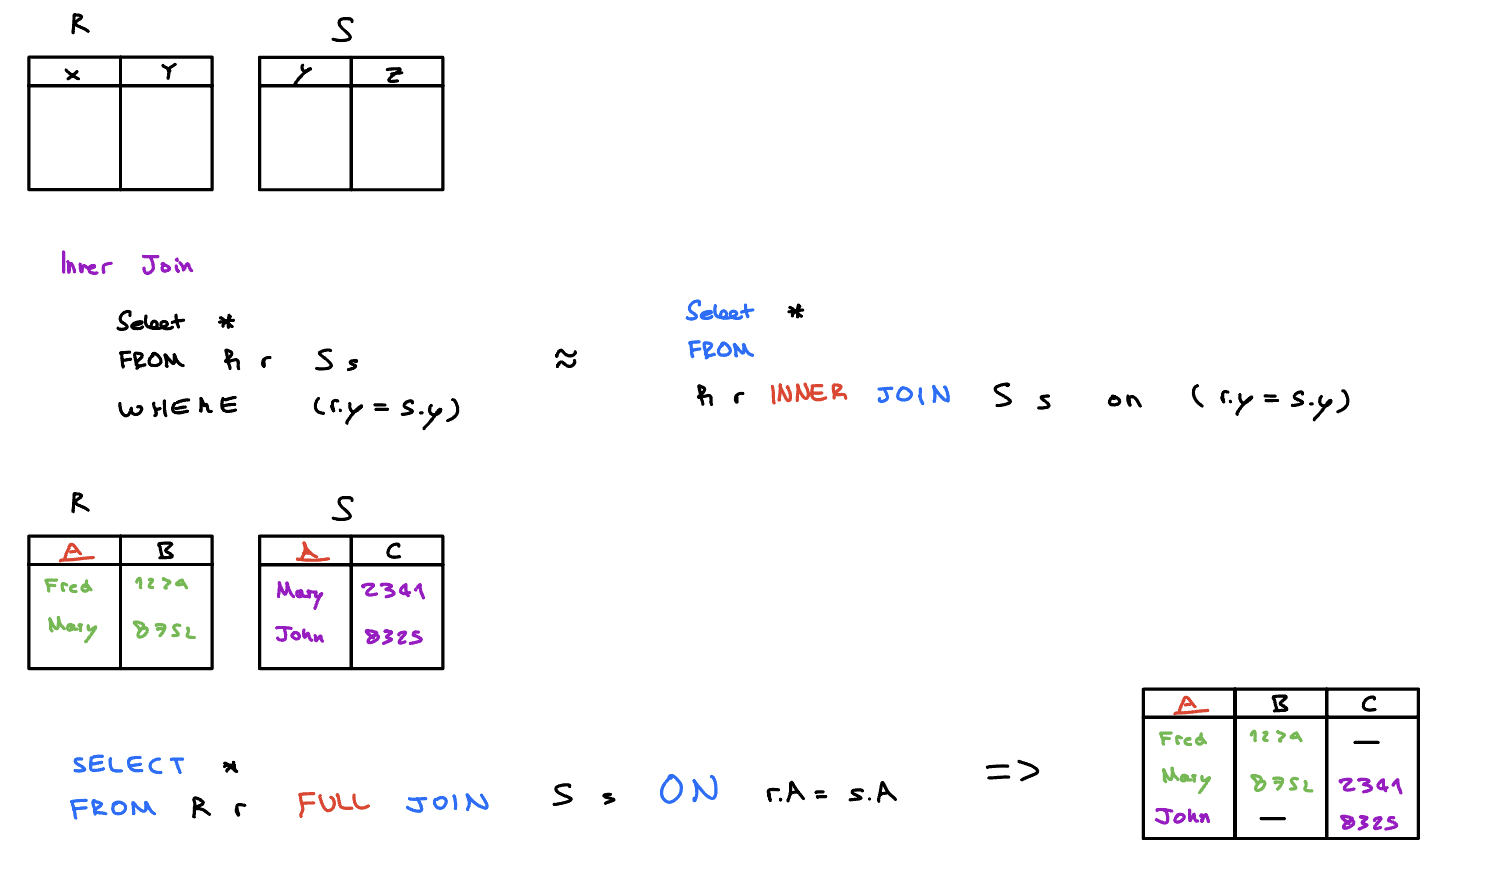 R S
x Y y z
Inner Join
Select *
FROM R r S s
WHERE (r.y = s.y)
≈
Select *
FROM
R r INNER JOIN S s on (r.y = s.y)
R S
A B A C
Fred Mary 2341
Mary 8752 John 8325
SELECT *
FROM R r FULL JOIN S s ON r.A = s.A
=>
A B C
Fred —
Mary 8752 2341
John — 8325